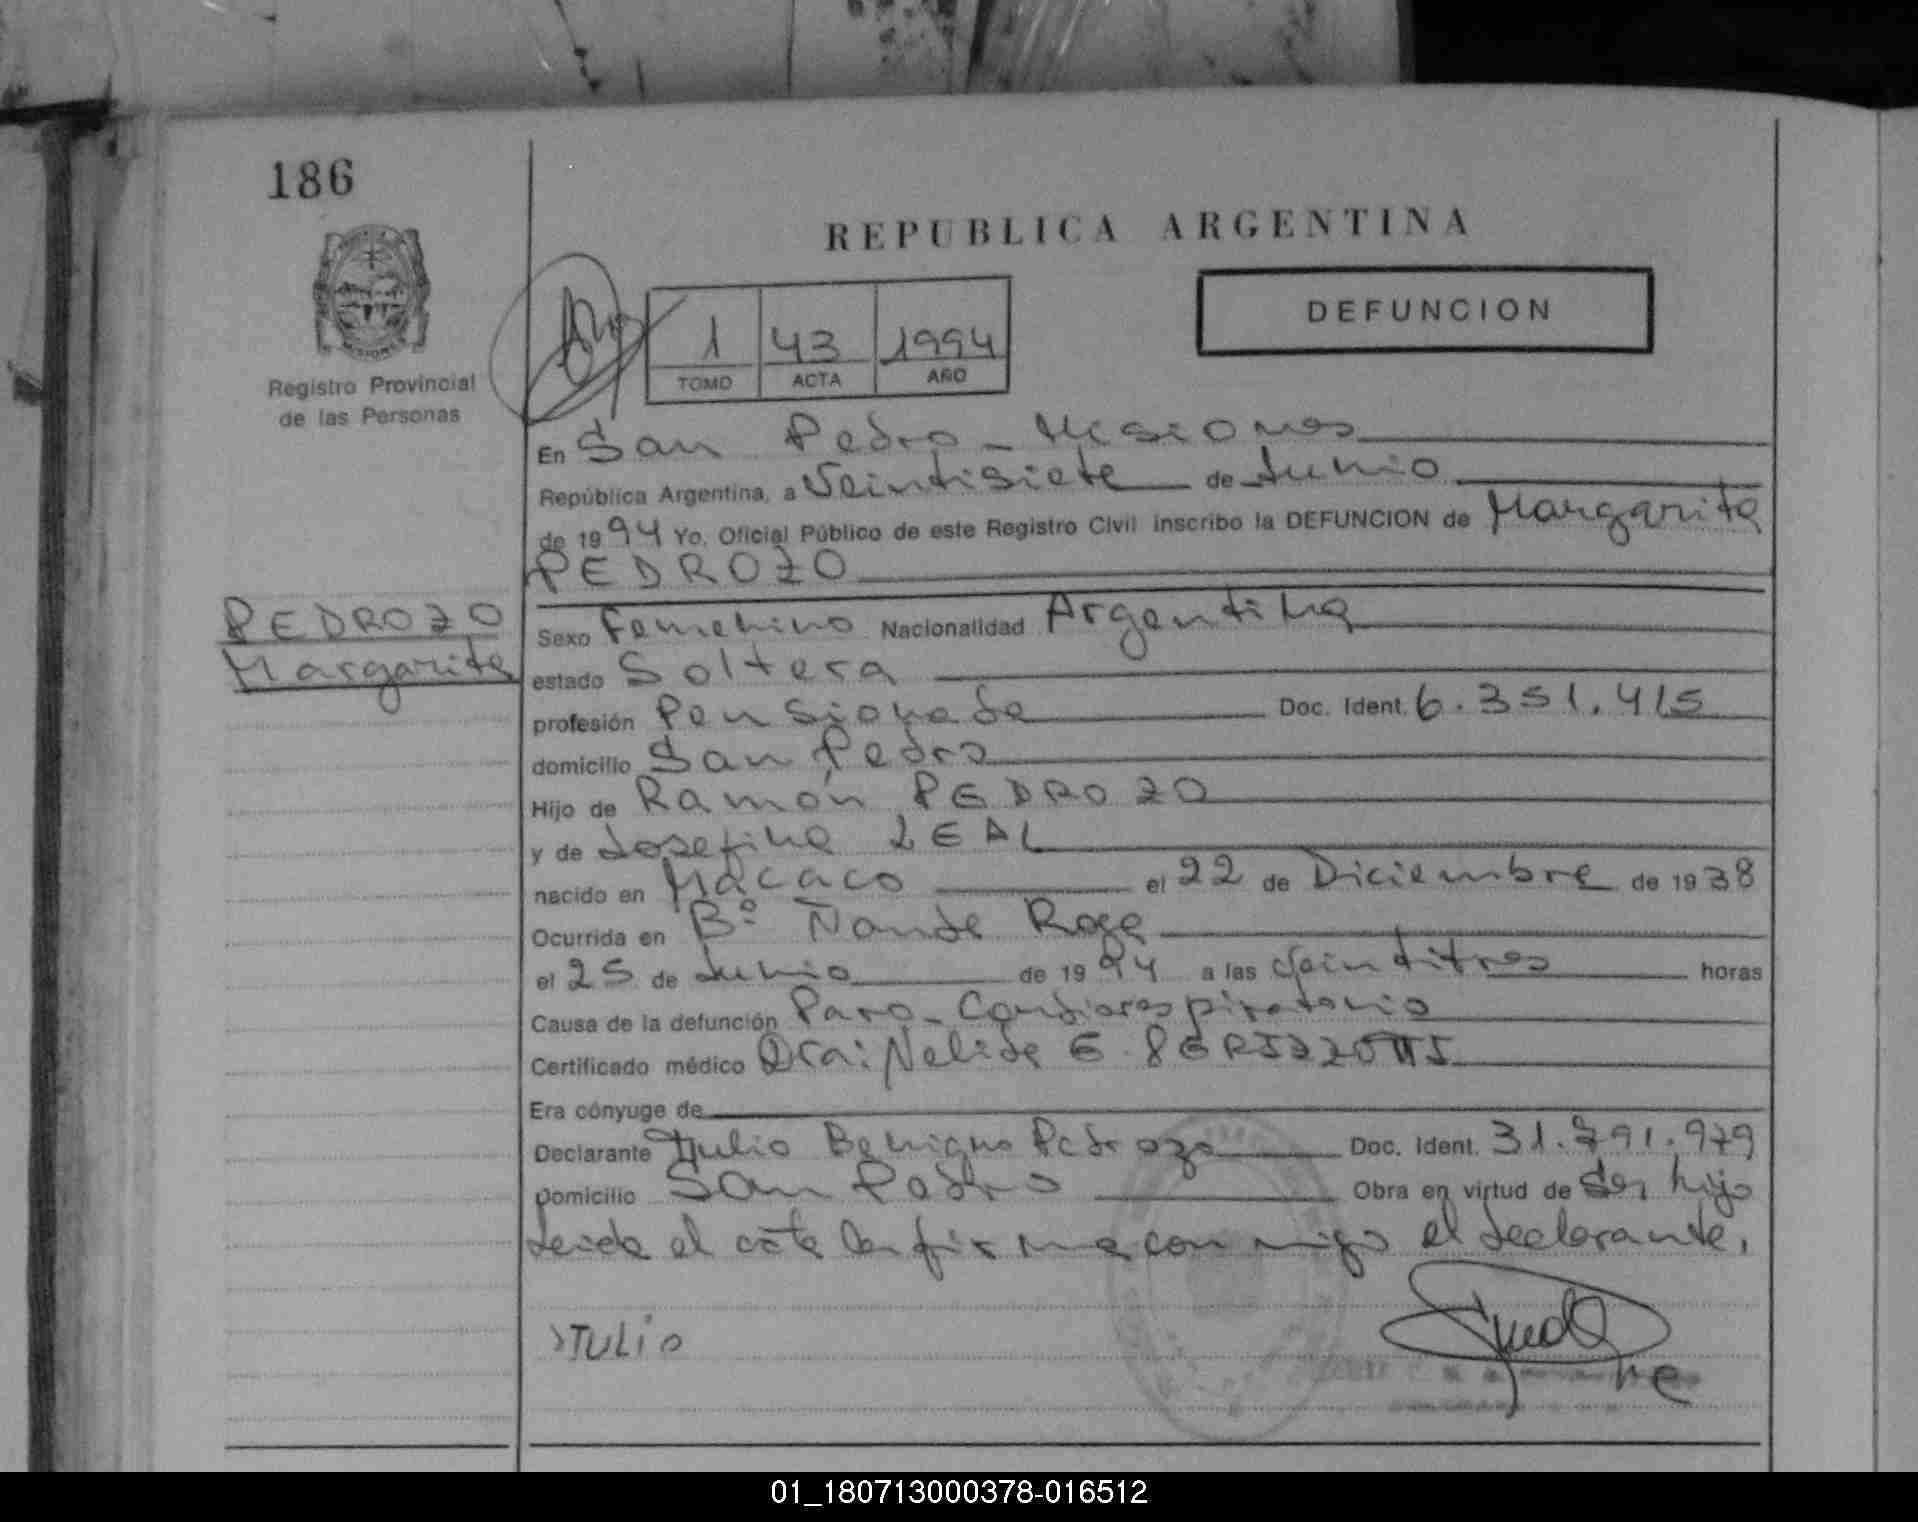 186
REPUBLICA ARGENTINA
DEFUNCION
1 43 1994
TOMO ACTA AÑO
Registro Provincial
de las Personas
En San Pedro - Misiones
República Argentina, a Veintisiete de Junio
de 1994 Yo, Oficial Público de este Registro Civil inscribo la DEFUNCION de Margarita
PEDROZO
PEDROZO
Margarita
Sexo Femenino Nacionalidad Argentina
estado Soltera
profesión Pensionada Doc. Ident. 6.351.415
domicilio San Pedro
Hijo de Ramón PEDROZO
y de Josefina LEAL
nacido en Macaco el 22 de Diciembre de 1938
Ocurrida en Bº Ñande Roga
el 25 de Junio de 1994 a las Veintitres horas
Causa de la defunción Paro - Cardiorespiratorio
Certificado médico Dra: Nelida E.
Era cónyuge de
Declarante Julio Benigno Pedrozo Doc. Ident. 31.791.979
Domicilio San Pedro Obra en virtud de Ser hijo
Leida el acta la firma con migo el declarante,
JTULIO